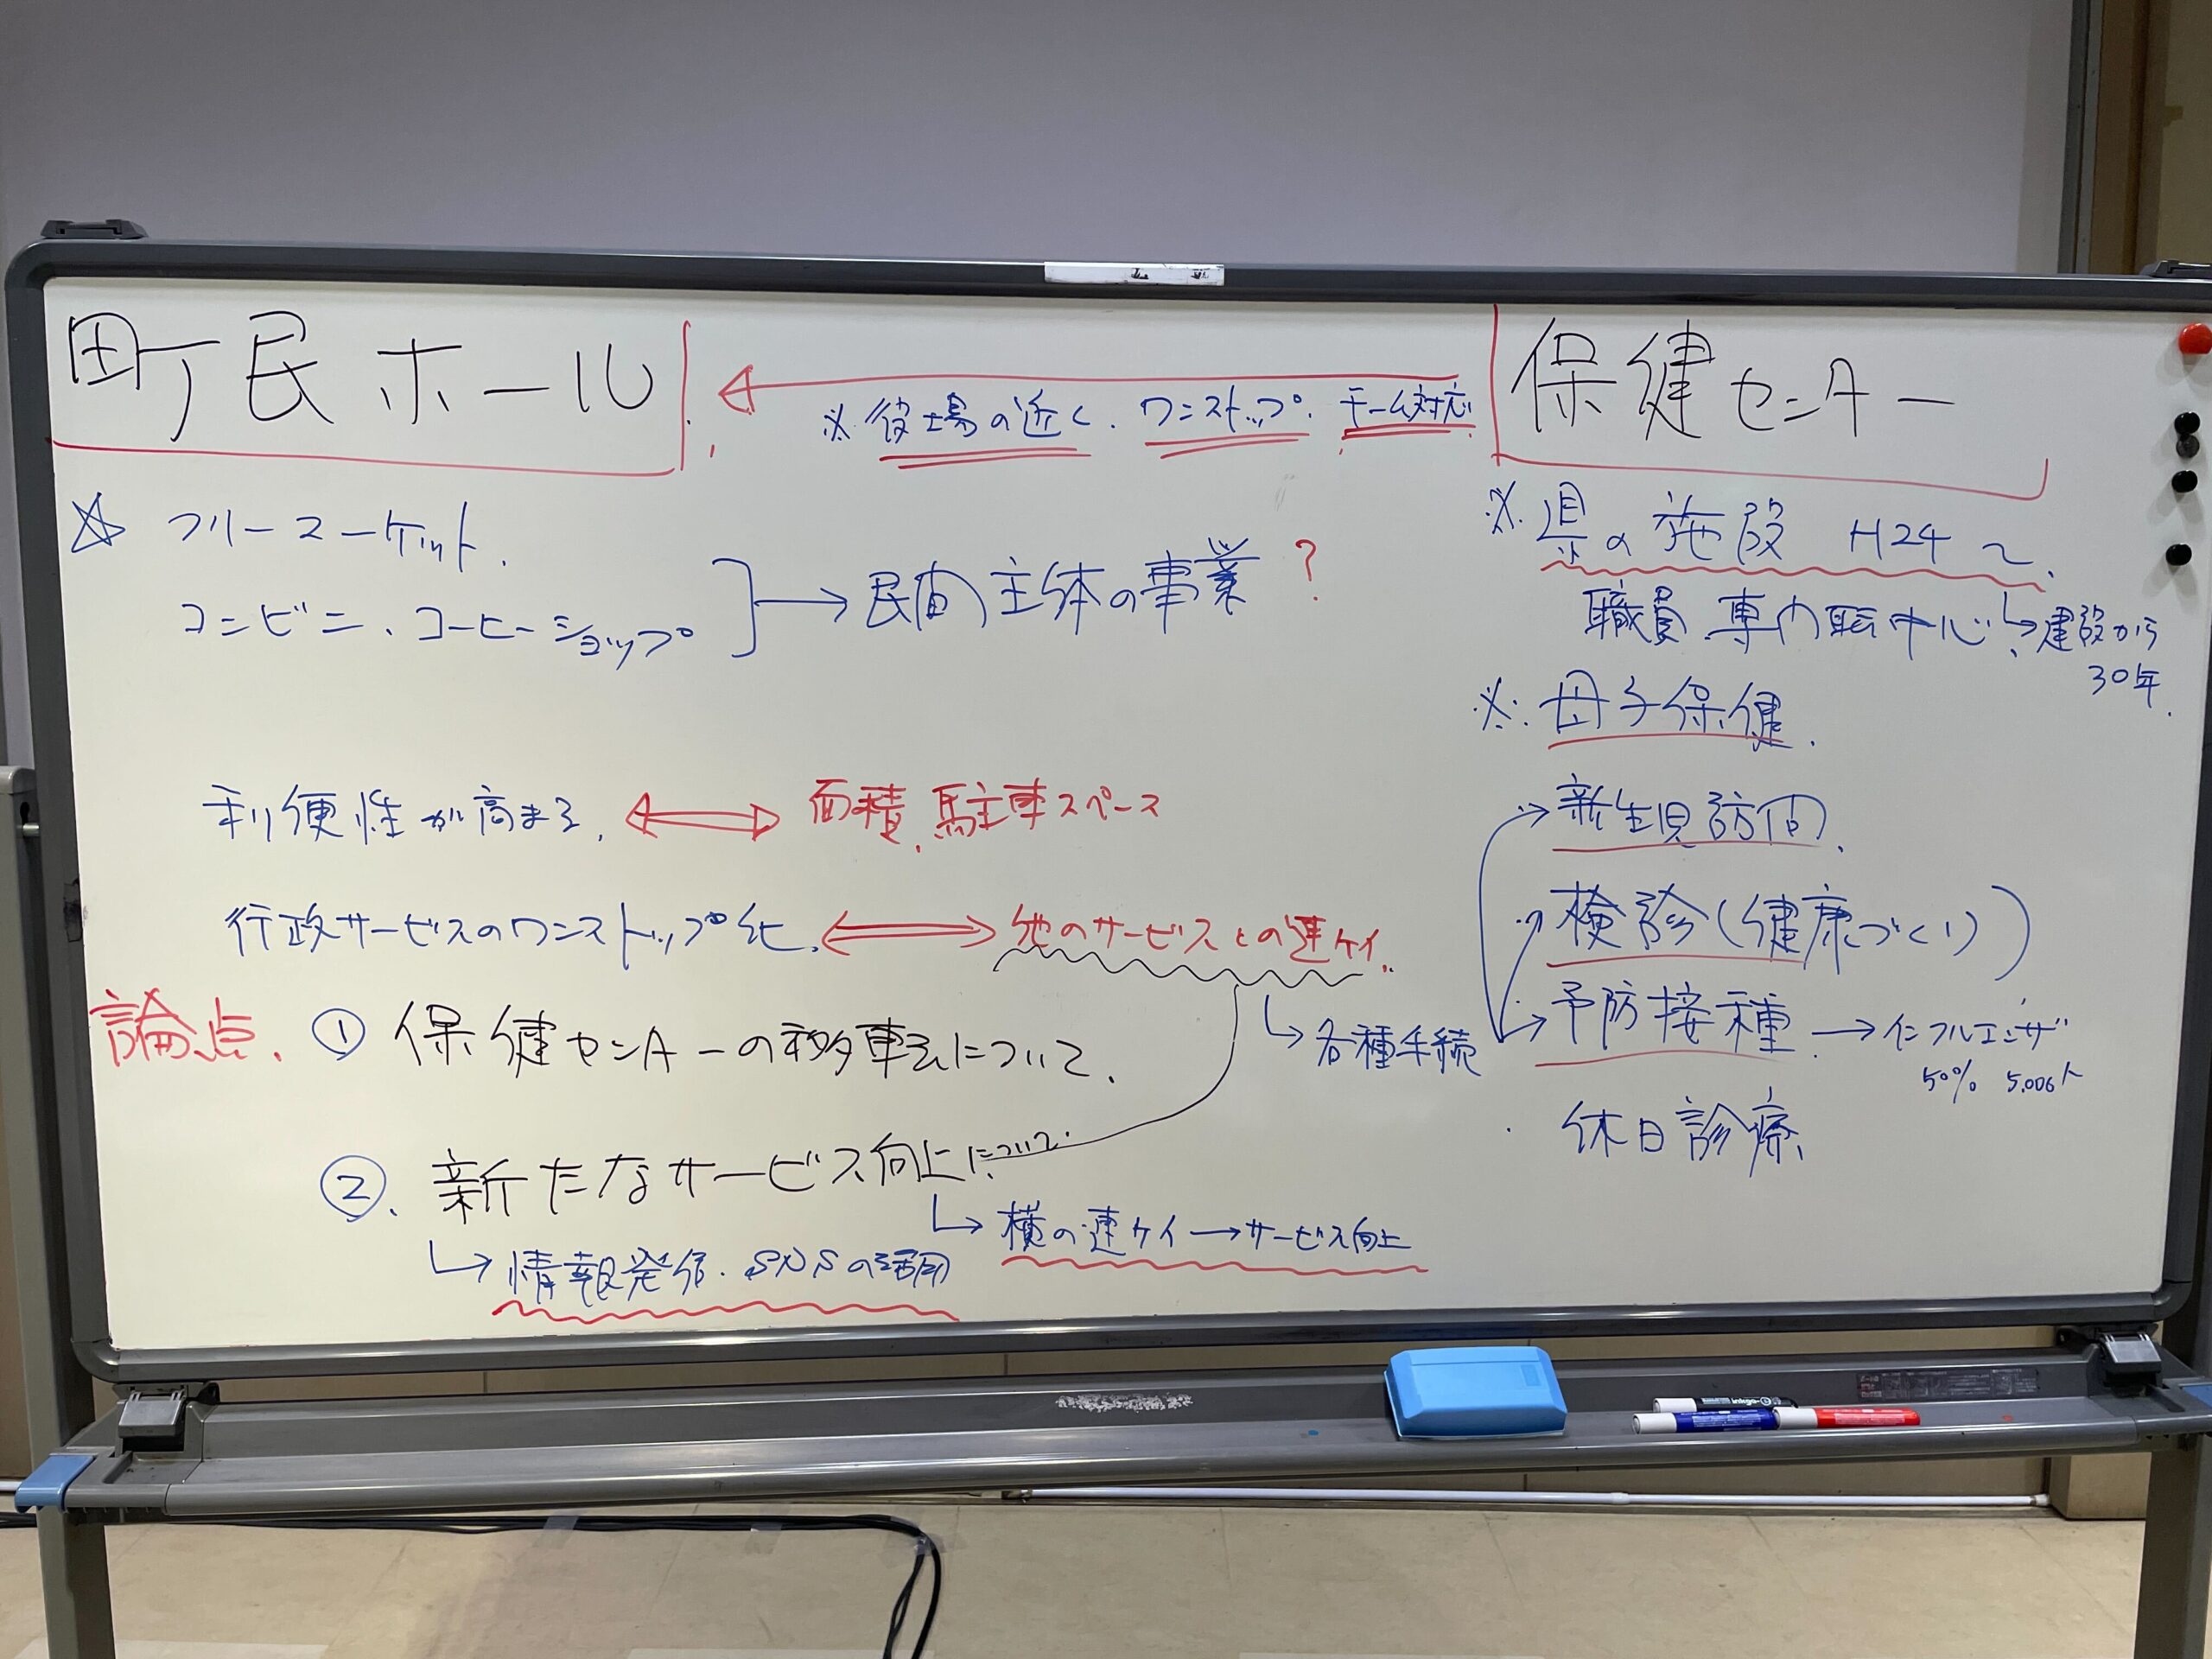 町民ホール
※役場の近く、ワンストップ、チーム対応
保健センター
☆ フリーマーケット、
コンビニ、コーヒーショップ
→ 民間主体の事業?
利便性が高まる、 ⇔ 面積、駐車スペース
行政サービスのワンストップ化、 ⇔ 他のサービスとの連ケイ、
↳ 各種手続
論点、① 保健センターの移転について、
②、新たなサービス向上について、
↳ 横の連ケイ → サービス向上
↳ 情報発信、SNSの活用
※、県の施設 H24〜、
職員、専門職中心、
↳ 建設から
30年、
※、母子保健、
新生児訪問、
検診(健康づくり)
予防接種 → インフルエンザ
50% 5,006人
・休日診療